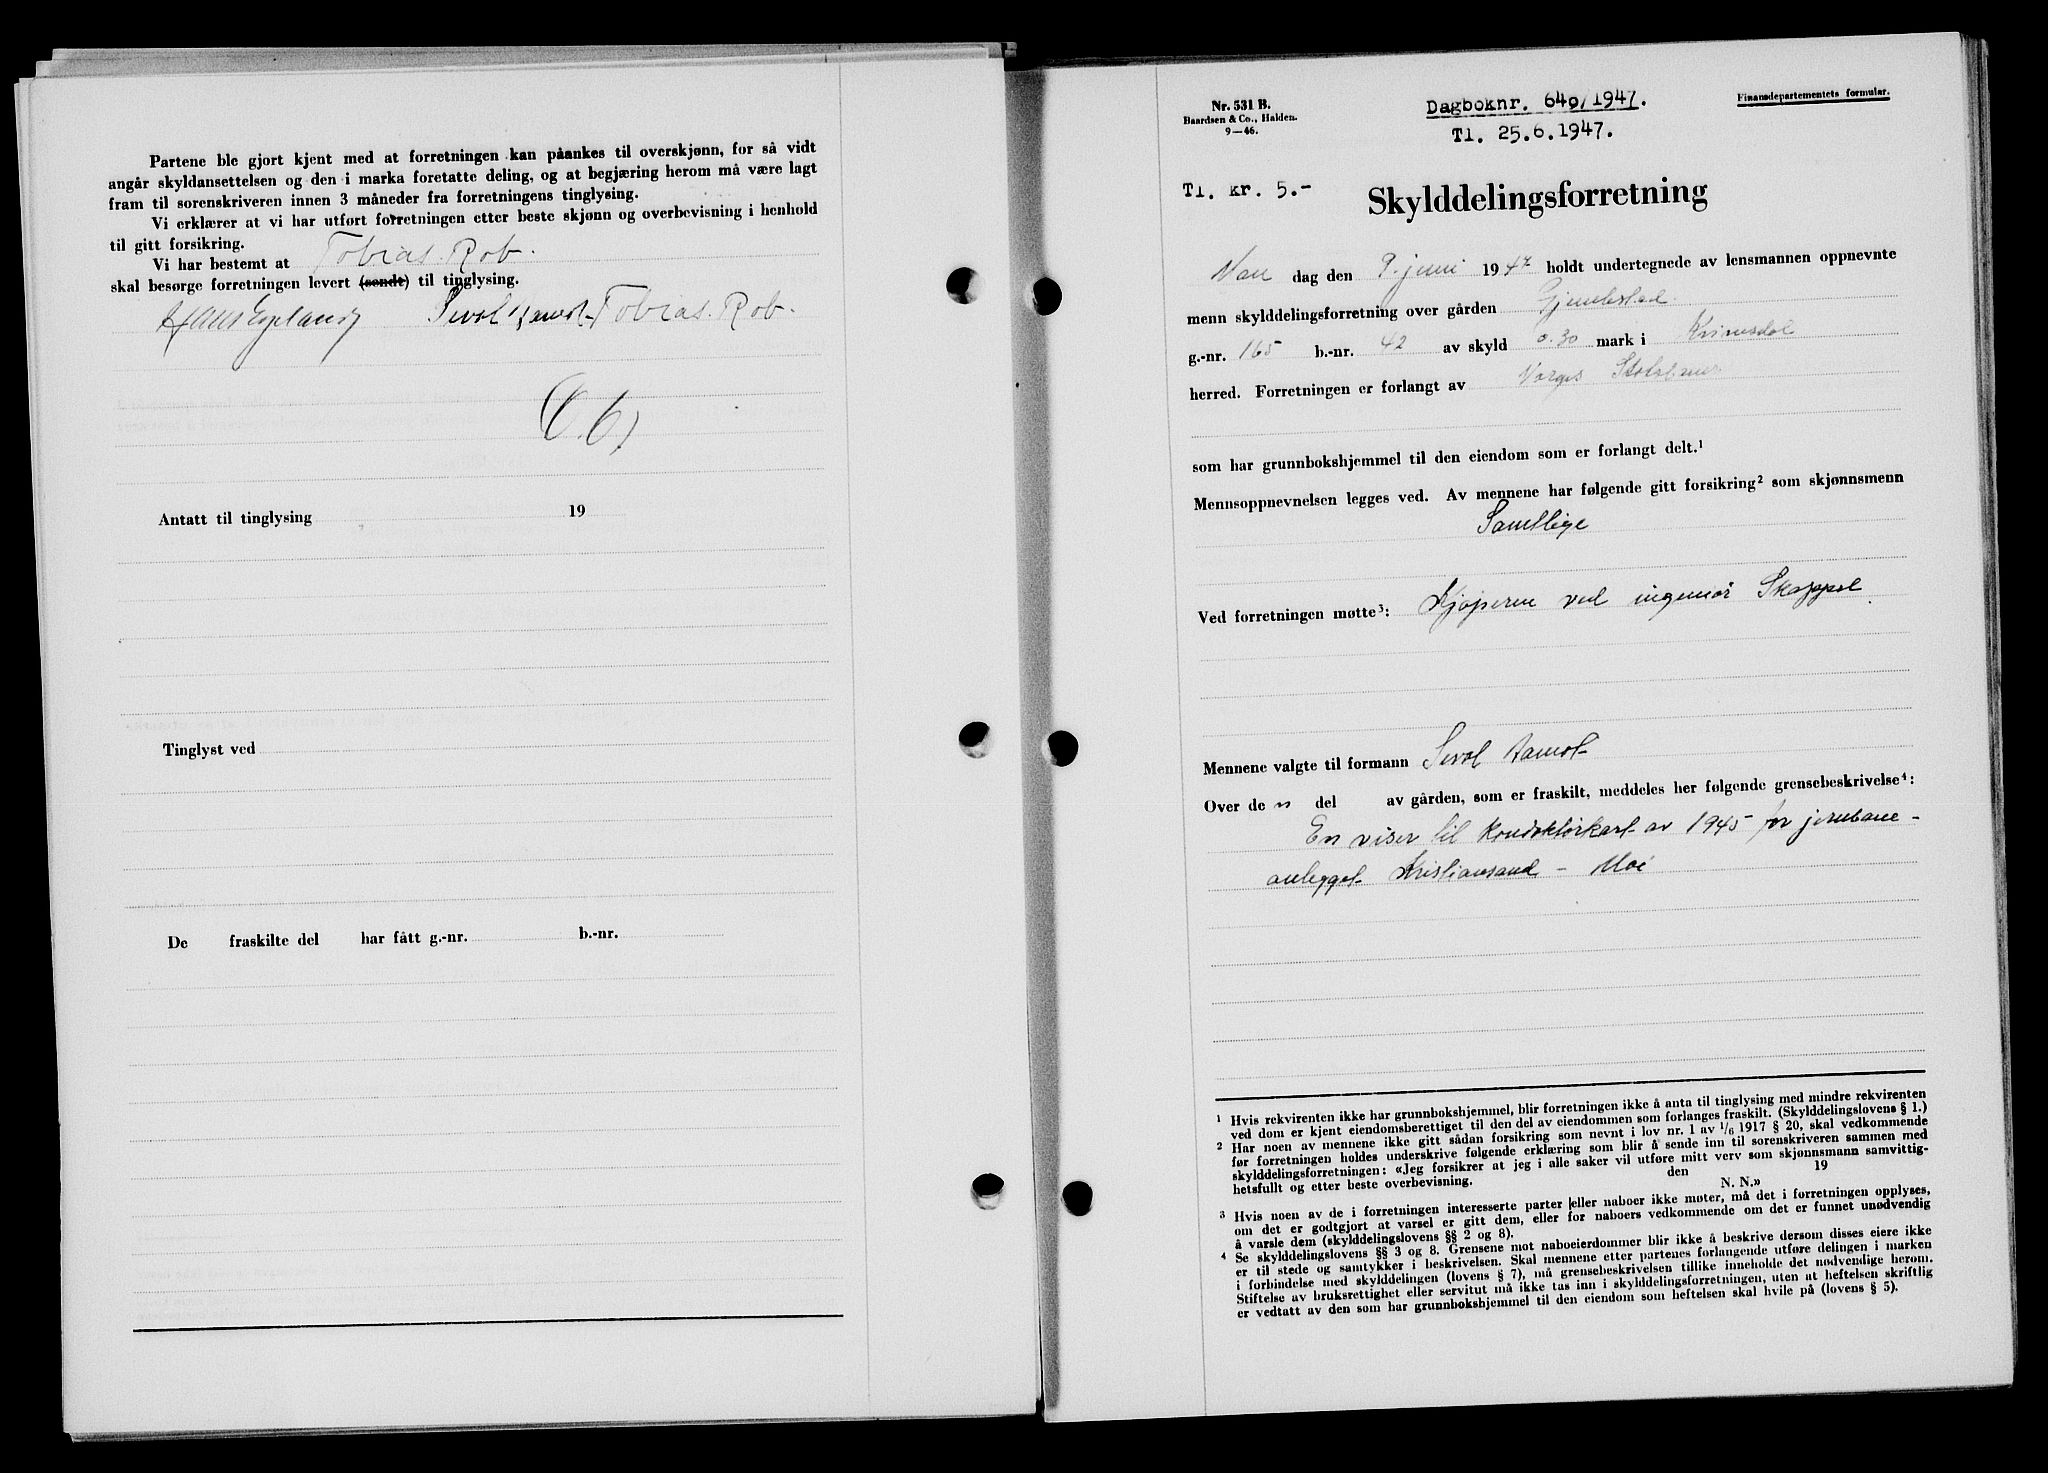 Partene ble gjort kjent med at forretningen kan påankes til overskjønn, for så vidt
angår skyldansettelsen og den i marka foretatte deling, og at begjæring herom må være lagt
fram til sorenskriveren innen 3 måneder fra forretningens tinglysing.
Vi erklærer at vi har utført forretningen etter beste skjønn og overbevisning i henhold
til gitt forsikring.
Vi har bestemt at Tobias Rob.
skal besørge forretningen levert (sendt) til tinglysing.
Hans Egeland Sivol Aamot Tobias. Rob.
Antatt til tinglysing 19
Tinglyst ved
De fraskilte del har fått g.-nr. b.-nr.
Nr. 531 B.
Baardsen & Co., Halden.
9—46.
Dagboknr. 640/1947.
Tl. 25.6.1947.
Finansdepartementets formular.
Tl. kr. 5.-
Skylddelingsforretning
Man dag den 9. juni 1947 holdt undertegnede av lensmannen oppnevnte
menn skylddelingsforretning over gården
g.-nr. 165 b.-nr. 42 av skyld 0.30 mark i Kvinesdal
herred. Forretningen er forlangt av Norges Statsbaner
som har grunnbokshjemmel til den eiendom som er forlangt delt.¹
Mennsoppnevnelsen legges ved. Av mennene har følgende gitt forsikring² som skjønnsmenn
Samtlige
Ved forretningen møtte³: Kjøperen ved ingeniør Skappel
Mennene valgte til formann Sivol Aamot
Over de n del av gården, som er fraskilt, meddeles her følgende grensebeskrivelse⁴:
En viser til konduktørkart av 1945 for jernbane-
anlegget Kristiansand - Moi
¹ Hvis rekvirenten ikke har grunnbokshjemmel, blir forretningen ikke å anta til tinglysing med mindre rekvirenten
ved dom er kjent eiendomsberettiget til den del av eiendommen som forlanges fraskilt. (Skylddelingslovens § 1.)
² Har noen av mennene ikke gitt sådan forsikring som nevnt i lov nr. 1 av 1/6 1917 § 20, skal vedkommende
før forretningen holdes underskrive følgende erklæring som blir å sende inn til sorenskriveren sammen med
skylddelingsforretningen: «Jeg forsikrer at jeg i alle saker vil utføre mitt verv som skjønnsmann samvittig-
hetsfullt og etter beste overbevisning. den 19
N. N.»
³ Hvis noen av de i forretningen interesserte parter eller naboer ikke møter, må det i forretningen opplyses,
om det er godtgjort at varsel er gitt dem, eller for naboers vedkommende om det er funnet unødvendig
å varsle dem (skylddelingslovens §§ 2 og 8).
⁴ Se skylddelingslovens §§ 3 og 8. Grensene mot naboeierdommer blir ikke å beskrive dersom disses eiere ikke
er til stede og samtykker i beskrivelsen. Skal mennene etter partenes forlangende utføre delingen i marken
i forbindelse med skylddelingen (lovens § 7), må grensebeskrivelsen tillike inneholde det nødvendige herom.
Stiftelse av bruksrettighet eller servitut må ikke tas inn i skylddelingsforretningen, uten at heftelsen skriftlig
er vedtatt av den som har grunnbokshjemmel til den eiendom som heftelsen skal hvile på (lovens § 5).